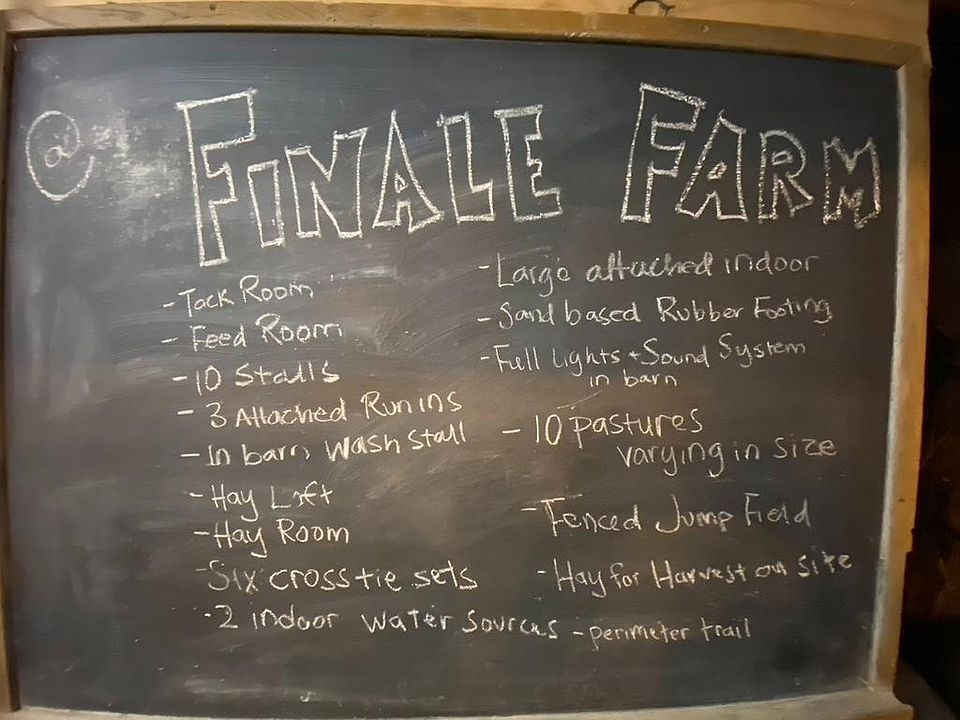 @ FINALE FARM
- Tack Room
- Feed Room
- 10 Stalls
- 3 Attached Run ins
- In barn Wash Stall
- Hay Loft
- Hay Room
- Six cross tie sets
- 2 indoor water sources
- Large attached indoor
- Sand based Rubber Footing
- Full lights + Sound System
in barn
- 10 pastures
varying in size
- Fenced Jump Field
- Hay for Harvest on site
- perimeter trail